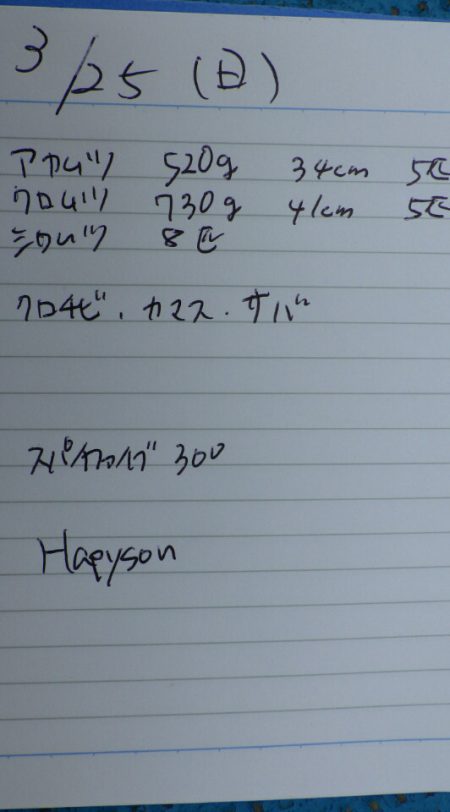 3/25 (日)
アカムツ 520g 34cm 5匹
クロムツ 730g 41cm 5匹
シロムツ 8匹
クロキビ、カマス・サバ
300
Hapyson